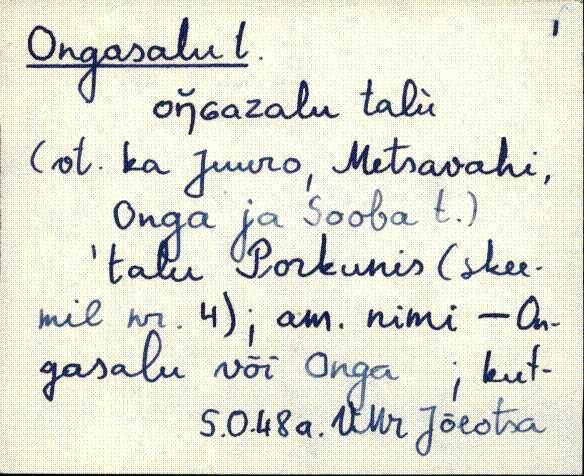 Ongasalu t.
oŋ̆ɢazalu talù
(vt. ka Juuro, Metsavahi,
Onga ja Sooba t.)
'talu Porkunis (skee-
mil nr. 4); am. nimi – On-
gasalu või Onga ; kut-
S.O.48a. VMr Jõeotsa